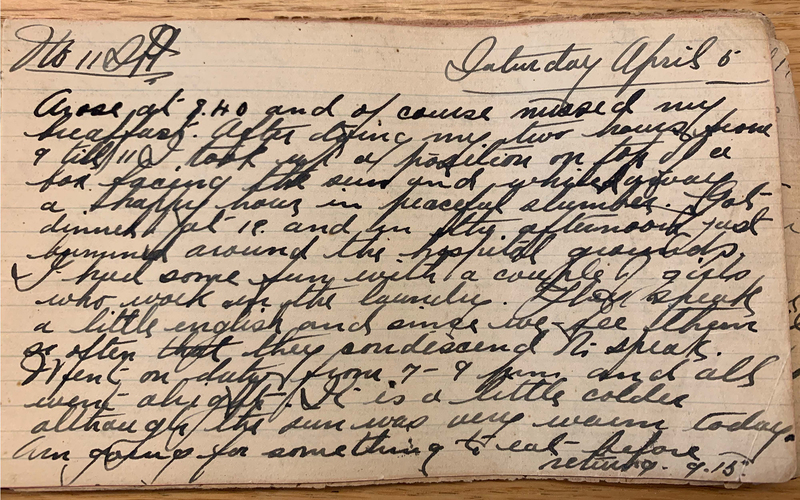 No 11 Saturday April 5
Arose at 8.40 and of course missed my
breakfast. After doing my two hours from
9 till 11 I took up a position on top of a
box facing the sun and whiled away
a happy hour in peaceful slumber. Got
dinner at 12 and in the afternoon just
bummed around the hospital grounds.
I had some fun with a couple of girls
who work in the laundry. They speak
a little english and since we see them
so often that they condescend to speak.
Went on duty from 7-9 p.m. and all
went alright. It is a little colder
although the sun was very warm today.
Am going for something to eat before
retiring. 9.15